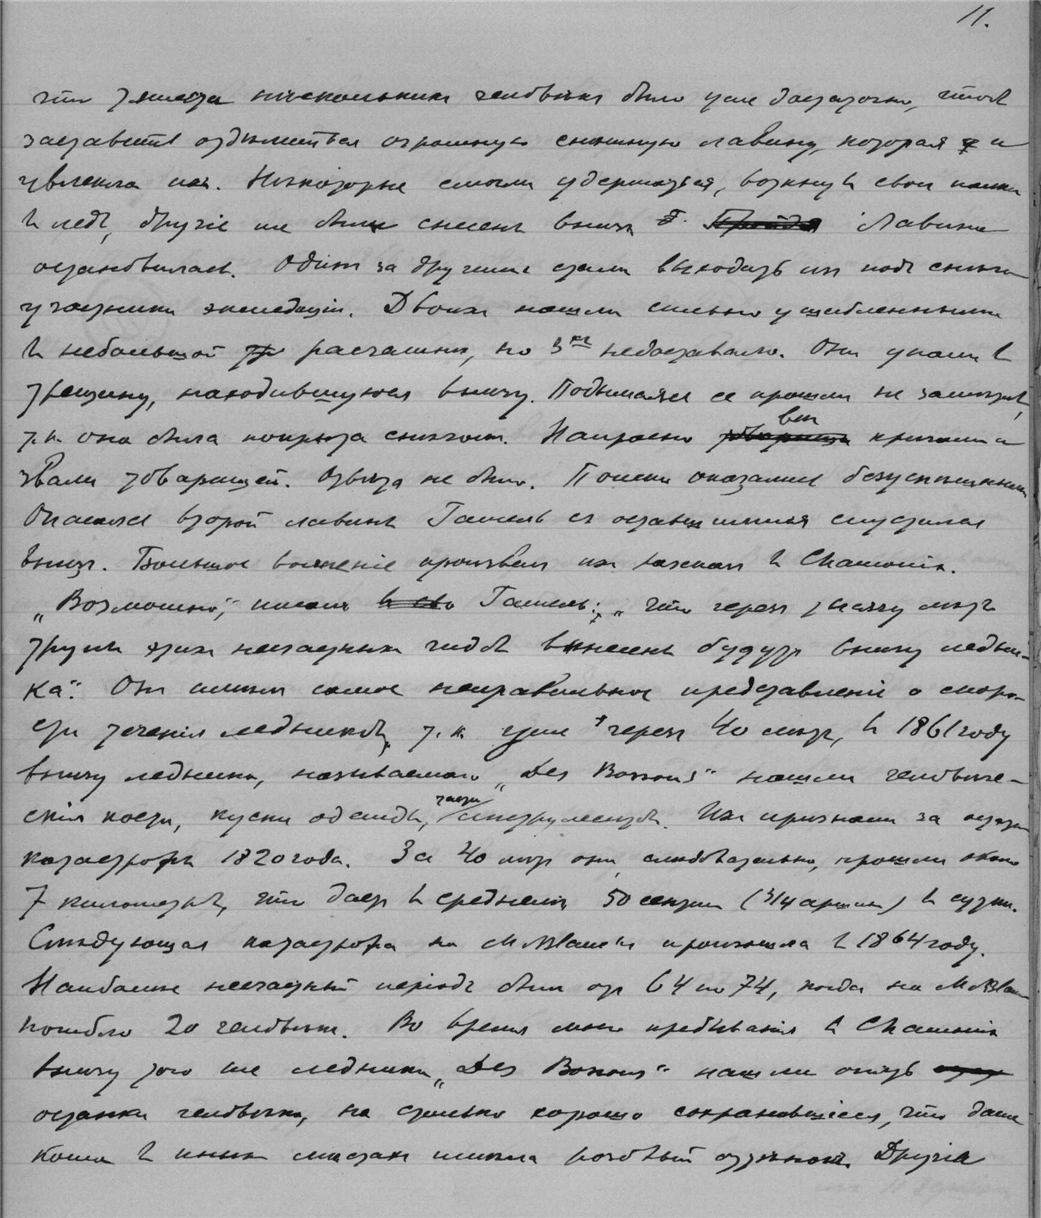 11.
что тяжести нѣсколькихъ человѣкъ было уже достаточно, чтобъ
заставить отдѣлиться огромную снѣжную лавину, которая и
увлекла ихъ. Нѣкоторые смогли удержаться, воткнувъ свои палки
въ ледъ, другіе же были снесены внизъ. Лавина
остановилась. Одинъ за другимъ стали выходить изъ подъ снѣга
участники экспедиціи. Двоихъ нашли сильно ушибленными
въ небольшой расчелинѣ, но 3хъ недоставало. Они упали въ
трещину, находившуюся внизу. Подымаясь ее прошли не замѣтивъ,
т.к. она была покрыта снѣгомъ. Напрасно всѣ кричали и
звали товарищей. Отвѣта не было. Поиски оказались безуспѣшными
Опасаясь второй лавины Гамель съ оставшимися спустился
внизъ. Большое волненіе произвелъ ихъ разсказъ въ Chamonix.
„Возможно," писалъ Гамель: „что черезъ тысячу лѣтъ
трупы этихъ несчастныхъ гидовъ вынесены будутъ внизу ледни-
ка". Онъ имѣлъ самое неправильное представленіе о скоро-
сти теченія ледниковъ, т.к. уже черезъ 40 лѣтъ, въ 1861 году
внизу ледника, называемаго „Des Bossons" нашли человѣче-
скія кости, куски одежды, части инструментовъ. Ихъ признали за остатки
катастрофы 1820 года. За 40 лѣтъ они, слѣдовательно, прошли около
7 километровъ, что даетъ въ среднемъ 50 сентим (3/4 аршина) въ сутки.
Слѣдующая катастрофа на M. Blanc'ѣ произошла въ 1864 году.
Наиболѣе несчастный періодъ былъ отъ 64 по 74, когда на M. Blanc
погибло 20 человѣкъ. Во время моего пребыванія въ Chamonix
внизу того же ледника „Des Bossons" нашли опять
останки человѣка, на столько хорошо сохранившіеся, что даже
кожа въ иныхъ мѣстахъ имѣла розовый оттѣнокъ. Другія